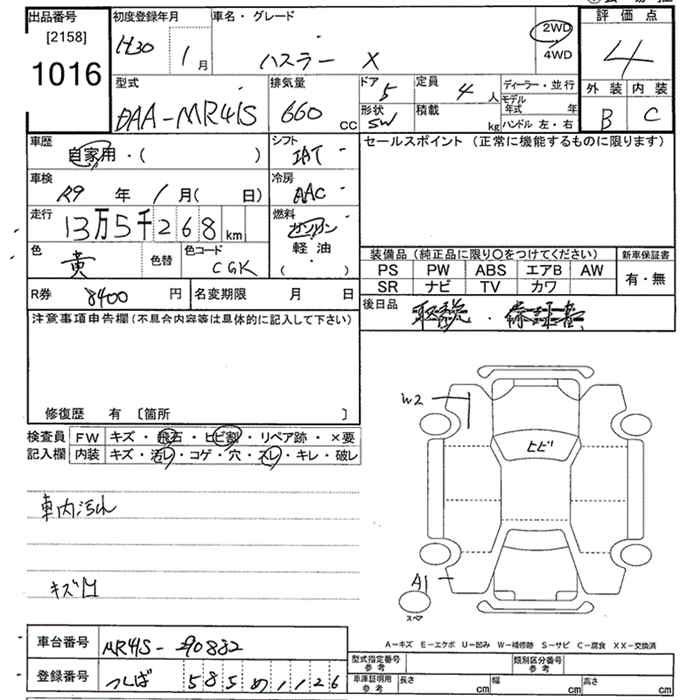 出品番号
[2158]
1016
初度登録年月
H30 年 1月
車名・グレード
ハスラー X
2WD
・
4WD
評価点
4
外装 内装
B C
型式
DAA-MR41S
排気量
660 cc
ドア 5
形状 SW
定員 4 人
積載 kg
ディーラー・並行
モデル年式 年
ハンドル 左・右
車歴
自家用・( )
シフト
IAT
車検
R9 年 1月( 日)
冷房
AAC
走行
13万5千268 km
燃料
ガソリン
・
軽油
( ・ )
色
黄
色替
色コード
CGK
R券 8400 円
名変期限 月 日
セールスポイント(正常に機能するものに限ります)
装備品(純正品に限り〇をつけてください)
PS PW ABS エアB AW
SR ナビ TV カワ
新車保証書
有・無
後日品
取説・保証書
注意事項申告欄(不具合内容等は具体的に記入して下さい)
修復歴 有 〔箇所 〕
検査員記入欄
FW キズ・飛石・ヒビ割・リペア跡・×要
内装 キズ・汚レ・コゲ・穴・スレ・キレ・破レ
車内汚れ
キズ凹
W2
ヒビ
A1
スペア
A-キズ E-エクボ U-凹み W-補修跡 S-サビ C-腐食 XX-交換済
車台番号 MR41S-290832
登録番号 つくば 585 め 1126
型式指定番号 参考
類別区分番号 参考
車庫証明用 参考
長さ cm 幅 cm 高さ cm